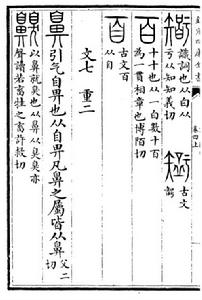 𥏼 識詞也从白从
亏从知知義切
古文
𥏼
百 十十也从一白數十
百為一貫相章也博陌切
古文百
从自
文七 重二
鼻 引气自畀也从自畀凡鼻之屬皆从鼻 父二
切
齅 以鼻就臭也从鼻从臭臭亦
聲讀若畜牲之畜許救切
卷四上